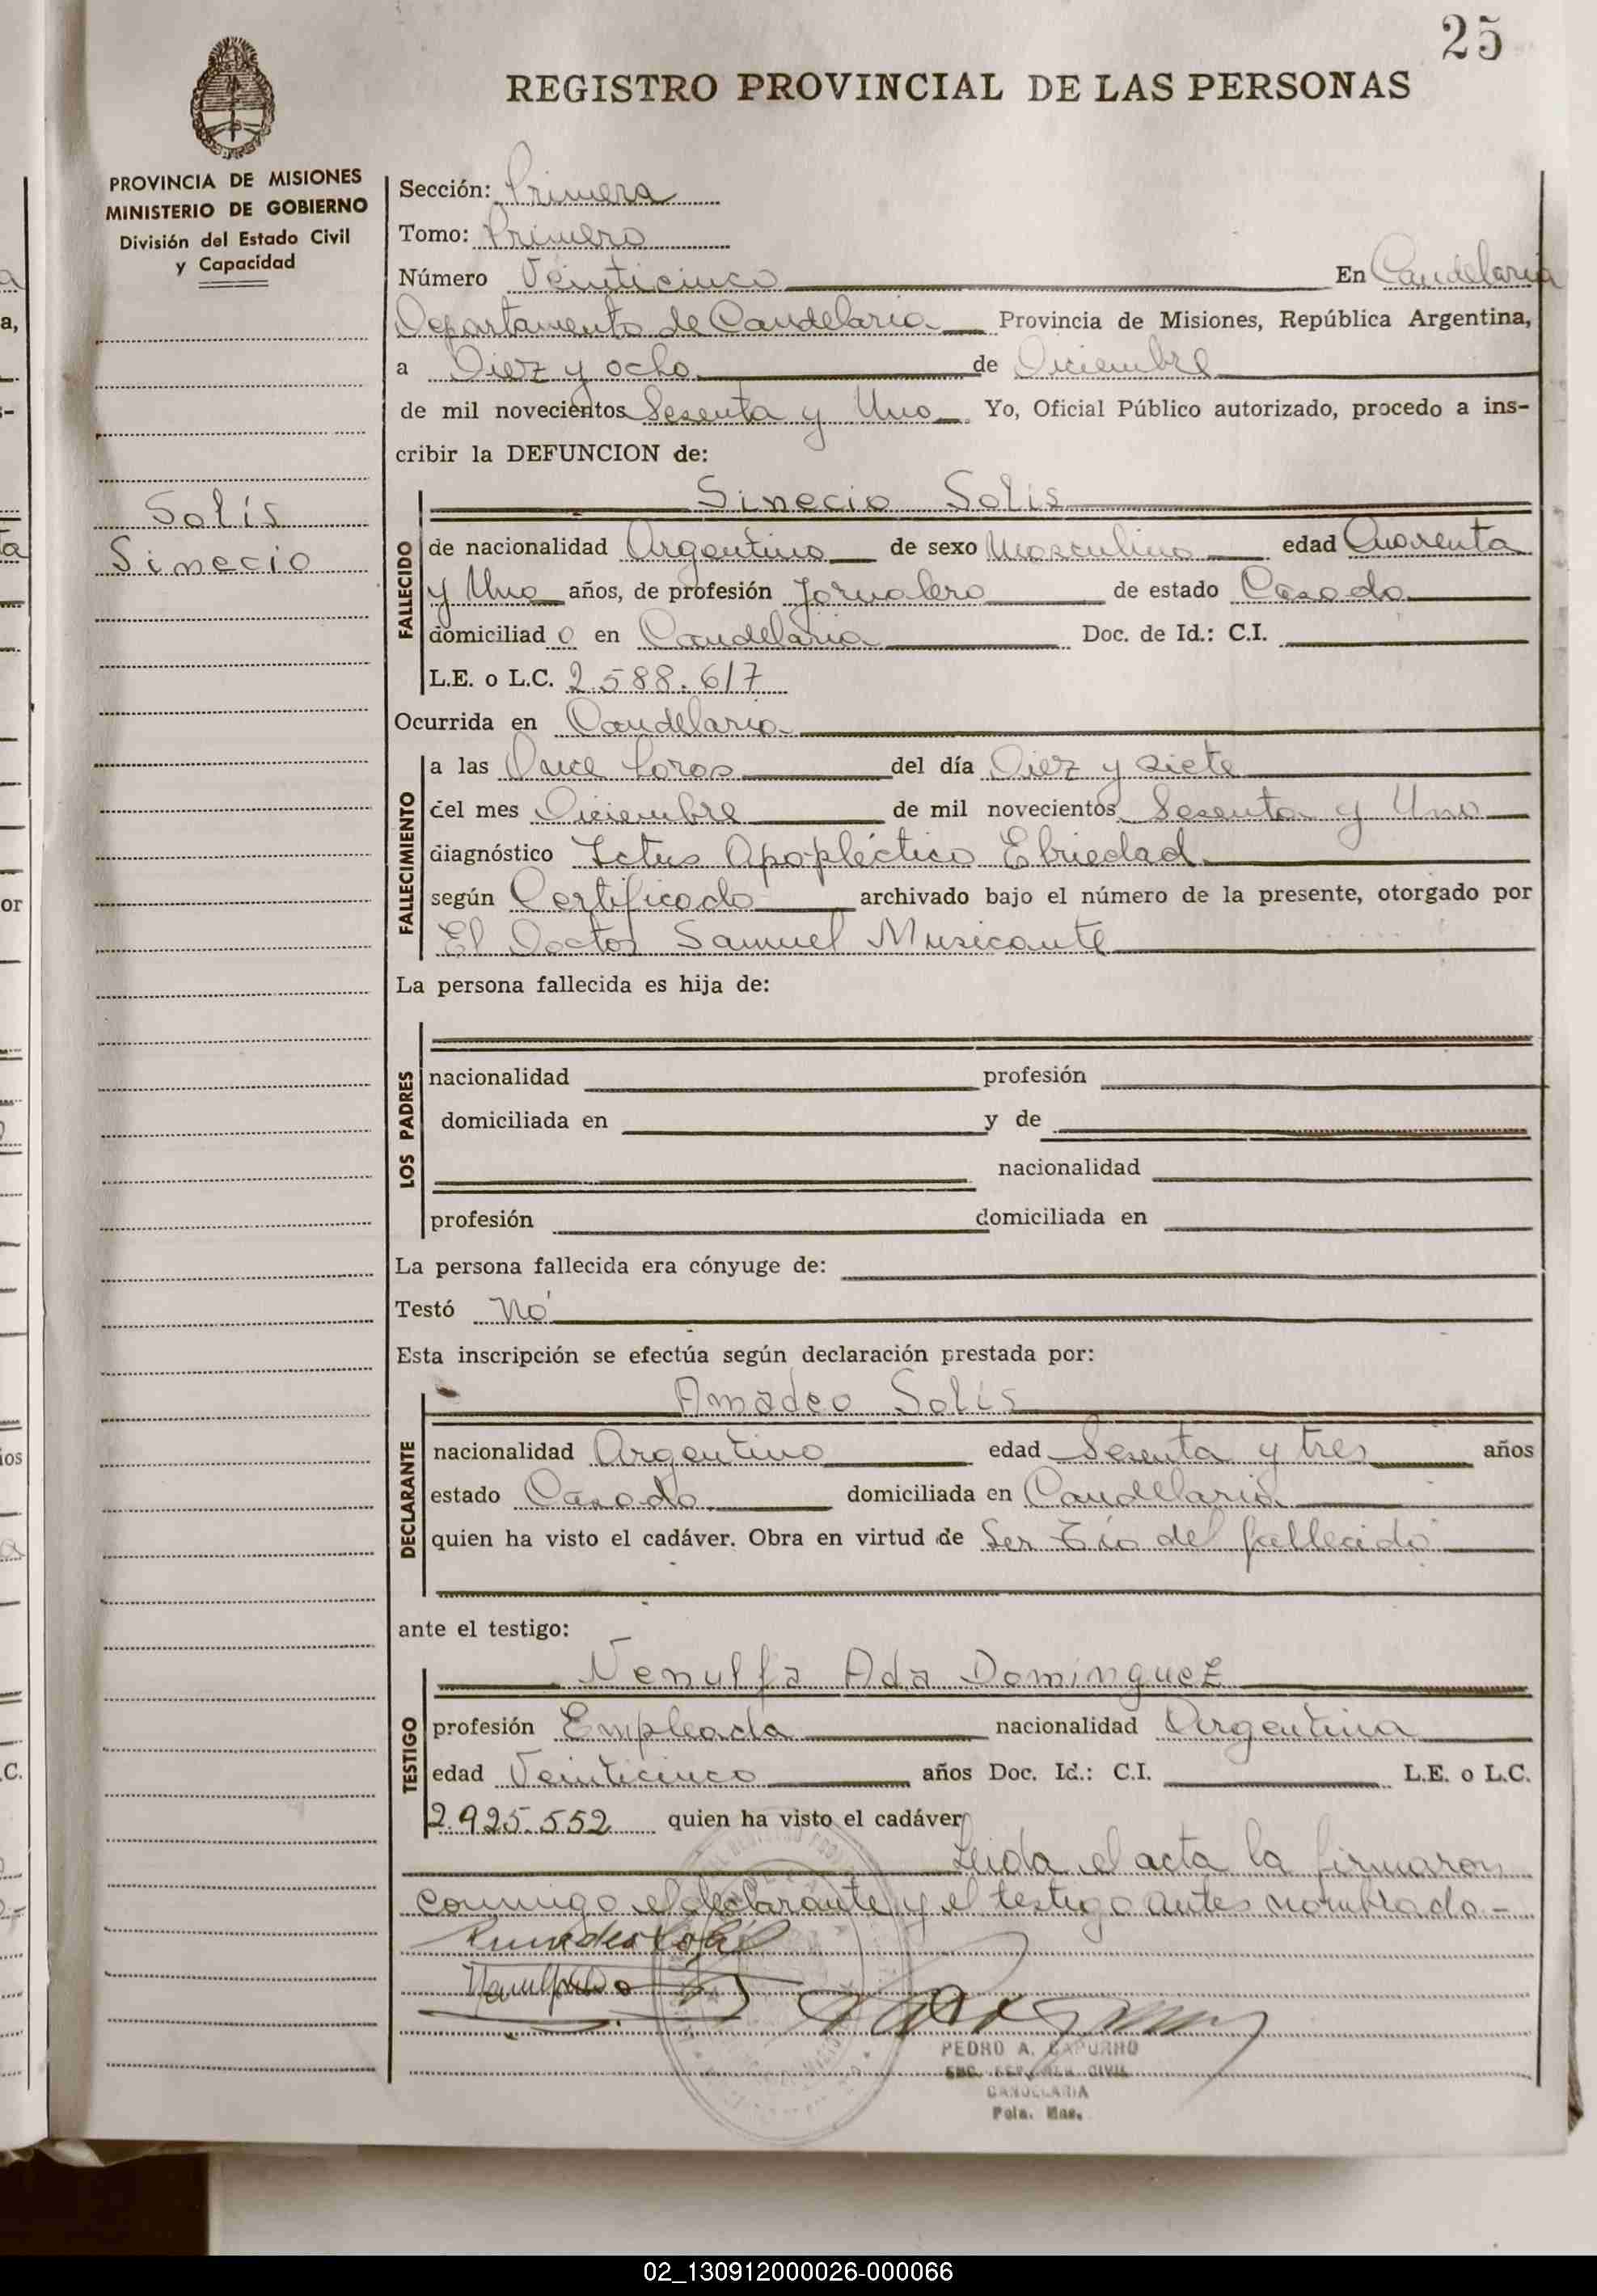 25
REGISTRO PROVINCIAL DE LAS PERSONAS
PROVINCIA DE MISIONES
MINISTERIO DE GOBIERNO
División del Estado Civil
y Capacidad
Solís
Sinecio
Sección: Primera
Tomo: Primero
Número Veinticinco En Candelaria
Departamento de Candelaria Provincia de Misiones, República Argentina,
a Diez y ocho de Diciembre
de mil novecientos Sesenta y Uno Yo, Oficial Público autorizado, procedo a ins-
cribir la DEFUNCION de:
Sinecio Solís
FALLECIDO
de nacionalidad Argentino de sexo Masculino edad Cuarenta
y Uno años, de profesión Jornalero de estado Casado
domiciliad o en Candelaria Doc. de Id.: C.I.
L.E. o L.C. 2.588.617
Ocurrida en Candelaria
FALLECIMIENTO
a las Once horas del día Diez y siete
del mes Diciembre de mil novecientos Sesenta y Uno
diagnóstico Ictus Apopléctico Ebriedad
según Certificado archivado bajo el número de la presente, otorgado por
El Doctor Samuel Musicante
La persona fallecida es hija de:
LOS PADRES
nacionalidad profesión
domiciliada en y de
nacionalidad
profesión domiciliada en
La persona fallecida era cónyuge de:
Testó No
Esta inscripción se efectúa según declaración prestada por:
Amadeo Solís
DECLARANTE
nacionalidad Argentino edad Sesenta y tres años
estado Casado domiciliada en Candelaria
quien ha visto el cadáver. Obra en virtud de Ser Tío del fallecido
ante el testigo:
Nenulfa Ada Domínguez
TESTIGO
profesión Empleada nacionalidad Argentina
edad Veinticinco años Doc. Id.: C.I. L.E. o L.C.
2.925.552 quien ha visto el cadáver
Leida el acta la firmaron
conmigo el declarante y el testigo antes nombrado.-
Amadeo Solís
PEDRO A. CAPURRO
ENC. REG. CIVIL
CANDELARIA
Pcia. Mnes.
02_130912000026-000066